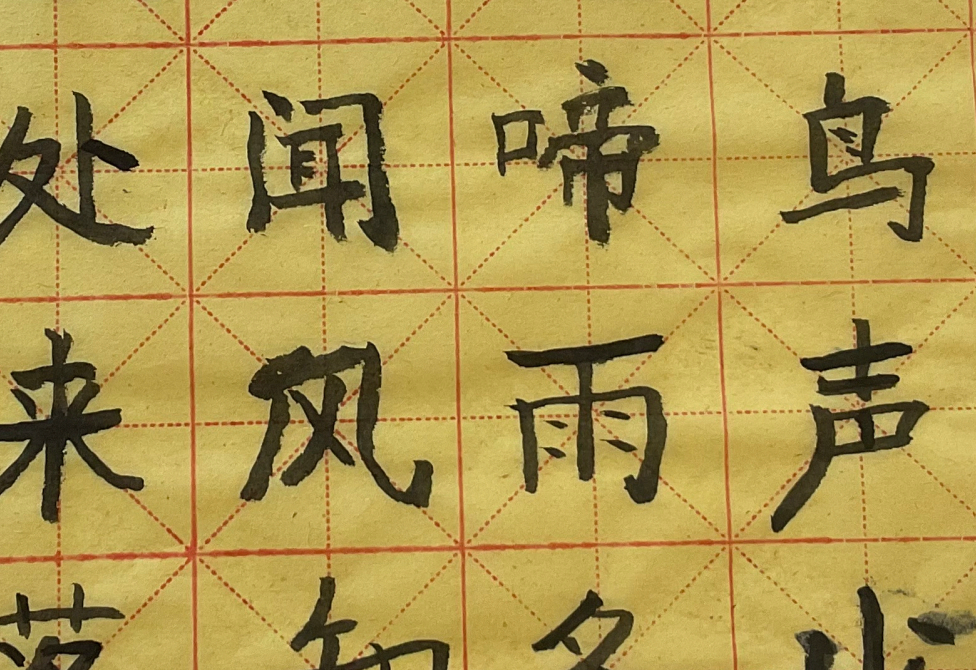 处闻啼鸟
来风雨声
落知多少